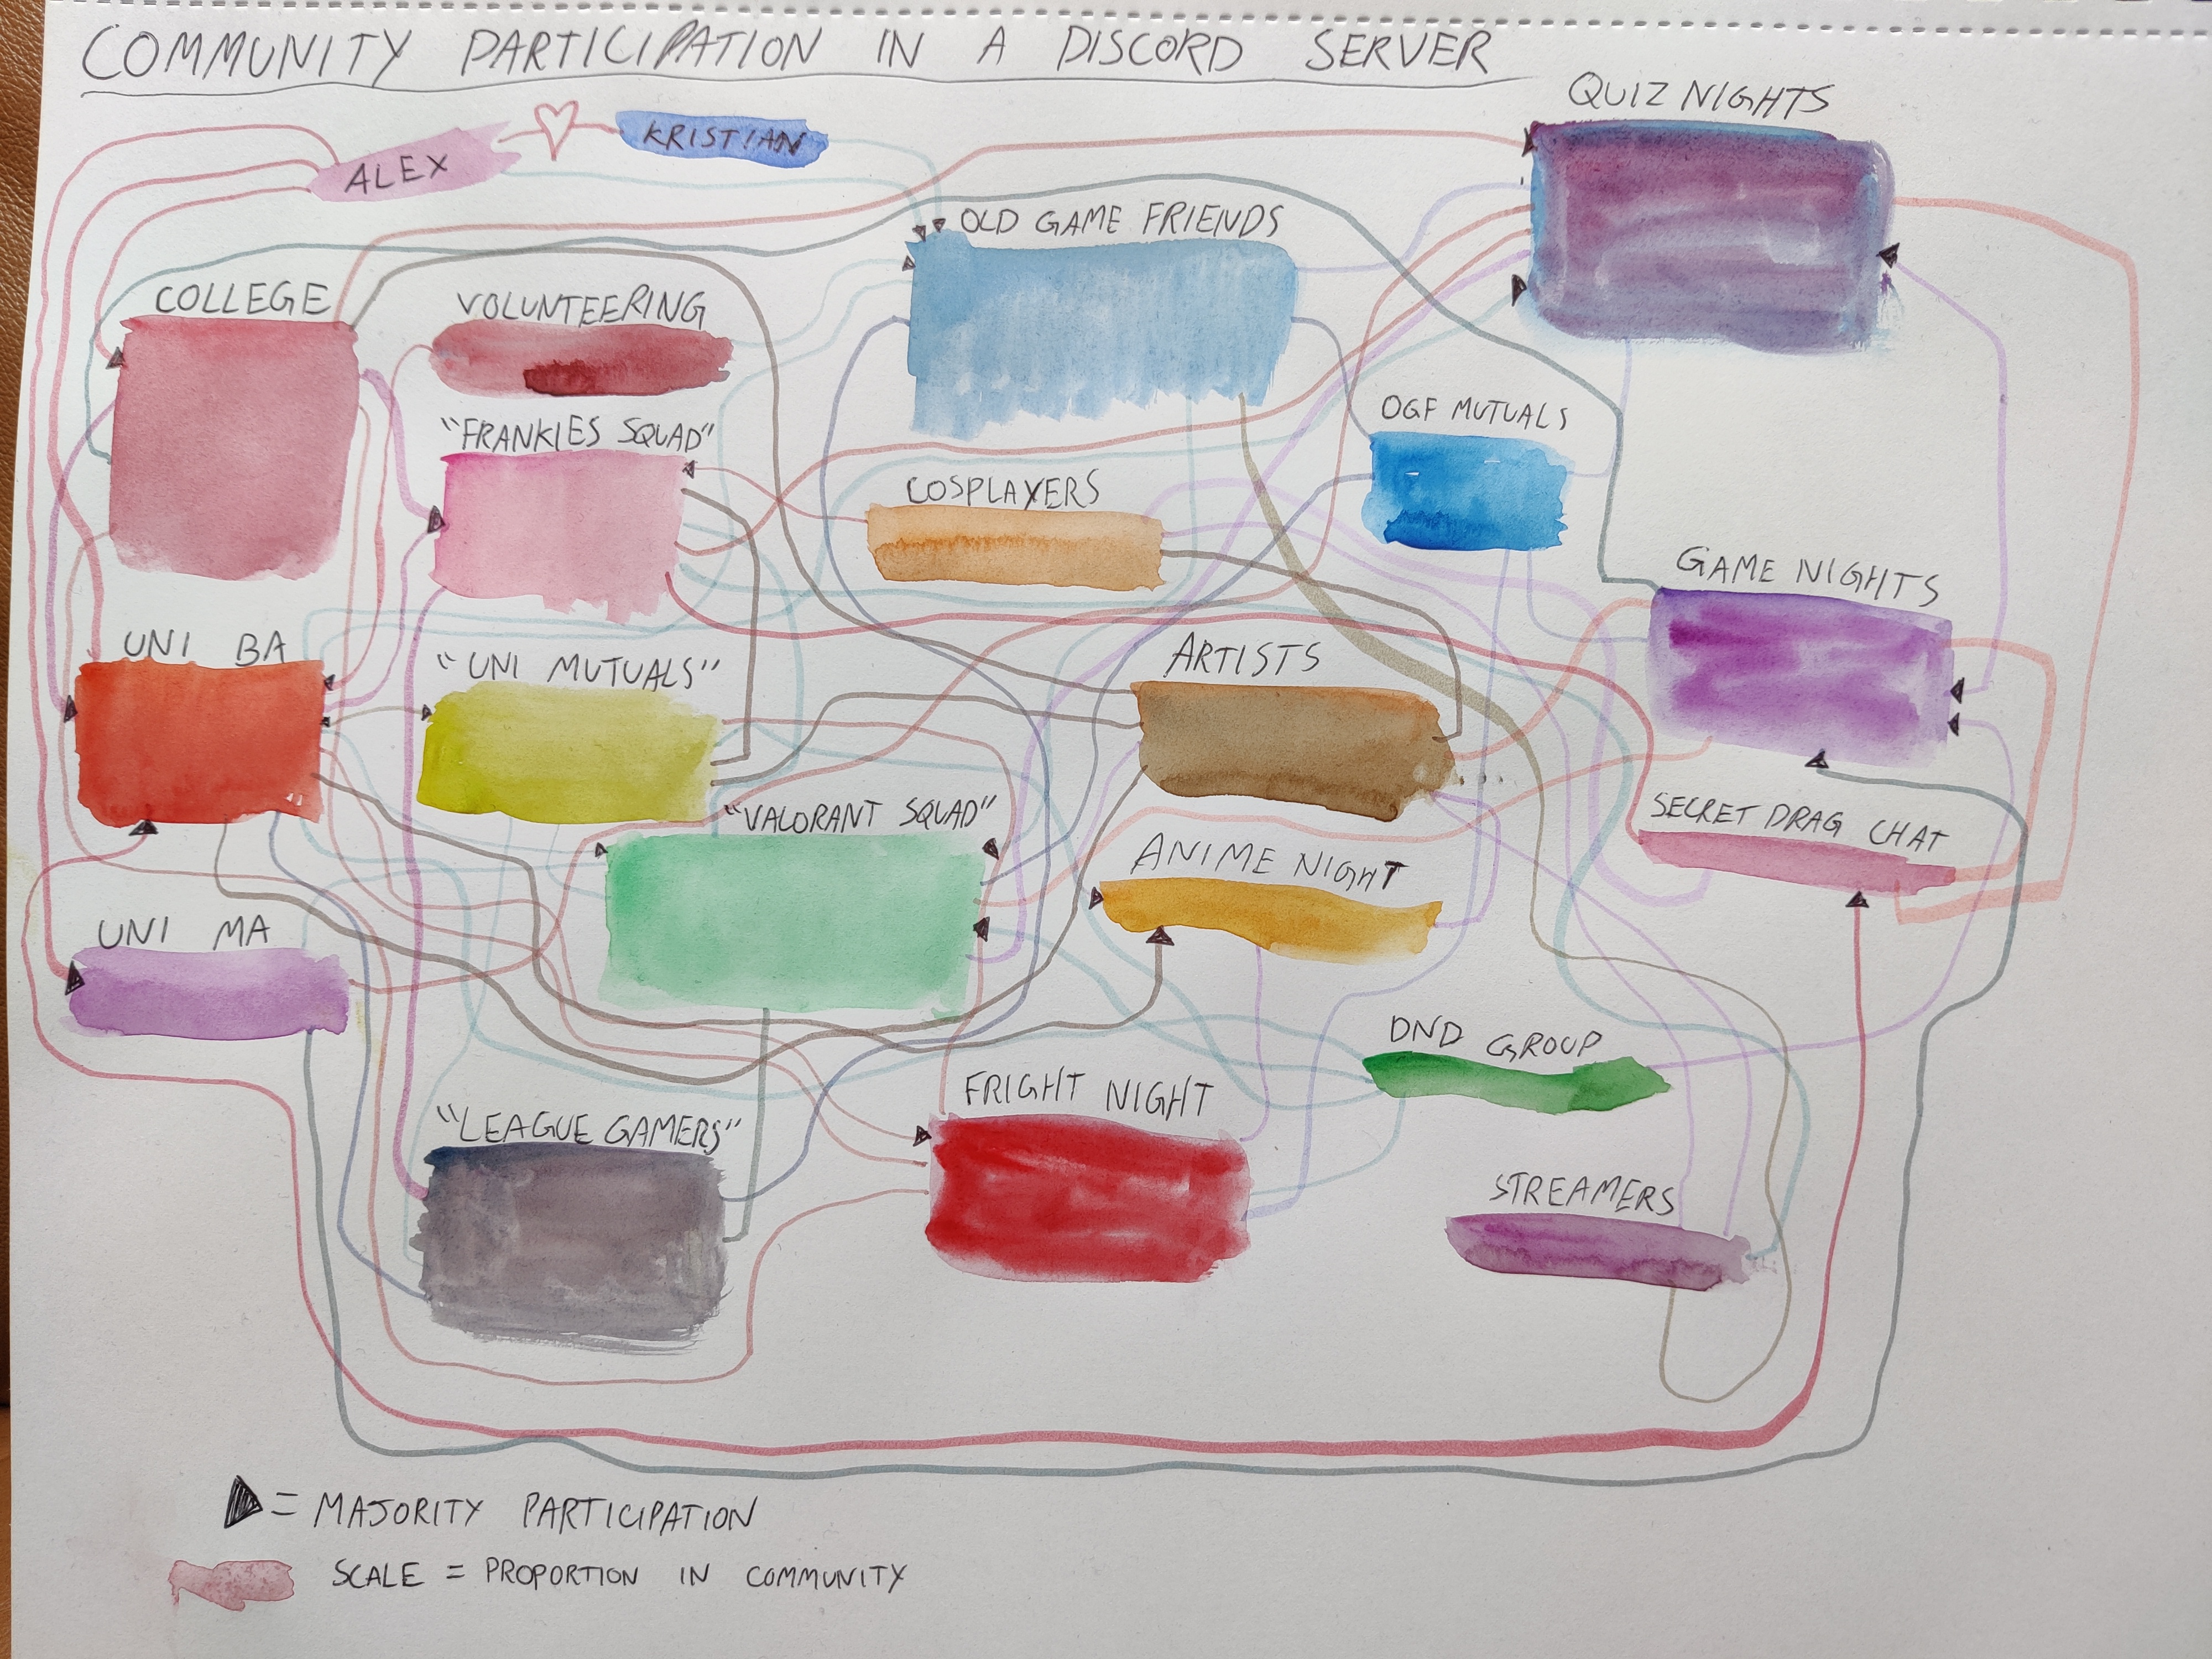 COMMUNITY PARTICIPATION IN A DISCORD SERVER
QUIZ NIGHTS
ALEX
KRISTIAN
OLD GAME FRIENDS
COLLEGE
VOLUNTEERING
"FRANKIES SQUAD"
OGF MUTUALS
COSPLAYERS
GAME NIGHTS
UNI BA
"UNI MUTUALS"
ARTISTS
"VALORANT SQUAD"
SECRET DRAG CHAT
ANIME NIGHT
UNI MA
DND GROUP
FRIGHT NIGHT
"LEAGUE GAMERS"
STREAMERS
= MAJORITY PARTICIPATION
SCALE = PROPORTION IN COMMUNITY